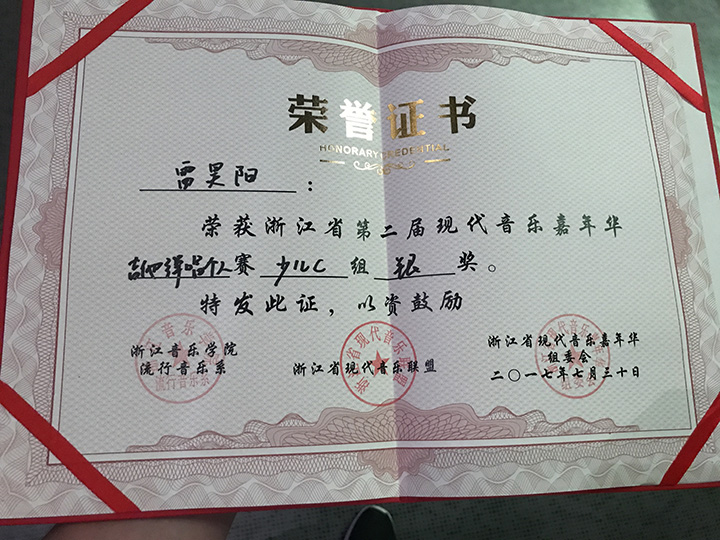 荣誉证书
HONORARY CREDENTIAL
雷昊阳：
荣获浙江省第二届现代音乐嘉年华
吉他弹唱个人赛 少儿C 组 银 奖。
特发此证，以资鼓励
浙江音乐学院
流行音乐系
浙江省现代音乐联盟
浙江省现代音乐嘉年华
组委会
二〇一七年七月三十日